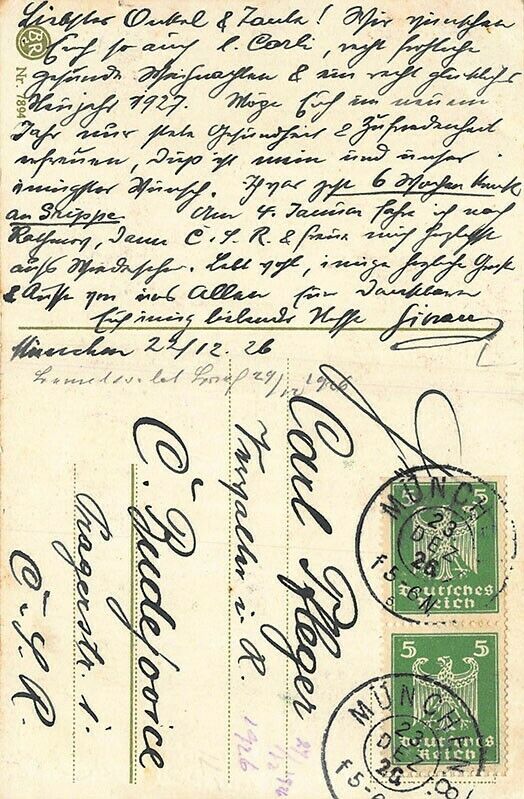 Liebster Onkel & Tante! Wir wünschen
Euch so auch l. Carli, recht fröhliche
gesunde Weihnachten & ein recht glückliches
Neujahr 1927. Möge Euch im neuem
Jahr nur stete Gesundheit & Zufriedenheit
erfreuen, dieß ist mein und unser
innigster Wunsch. Ich war jetzt 6 Wochen krank
an Grippe. Am 4. Januar fahre ich nach
dann C. S. R. & freue mich herzlichst
aufs Wiedersehen. Lebt wohl, innige herzliche Grüße
& Küsse von uns Allen Euer dankbarer
Euch innig liebender Neffe
München 22/12. 26
29/12 1926
BRC
Nr. 7894
Carl Pfleger
Verwalter i. R.
Č. Budejovice
Pragerstr. 1.
Č. S. R.
1926
MÜNCH
23
DEZ
26
f 5-6 N
5 5
Deutsches
Reich
5 5
Deutsches
Reich
MÜNCHEN
23
DEZ
26
f 5-6